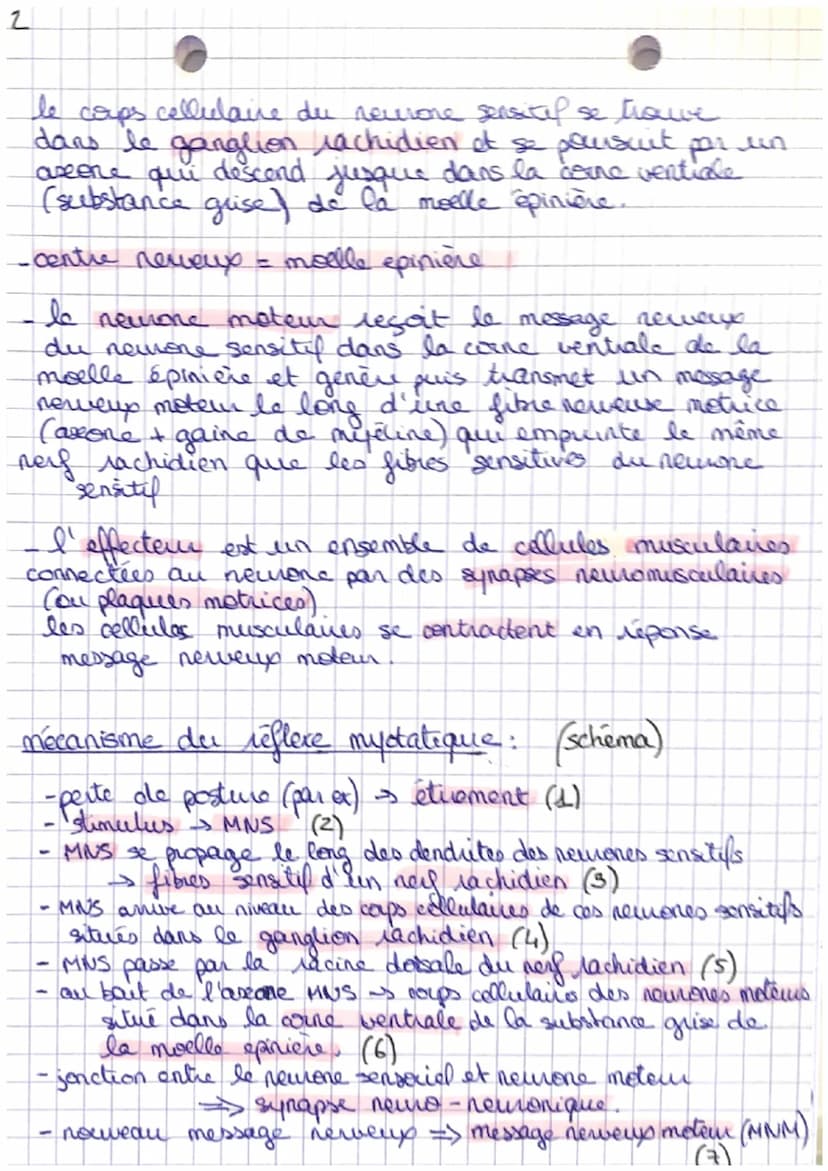 2
le corps cellulaire du neurone sensitif se trouve
dans le ganglion rachidien et se poursuit par un
axone qui descend jusque dans la corne ventrale
(substance grise) de la moelle épinière.
- centre nerveux = moelle epinière
- le neurone moteur reçoit le message nerveux
du neurone sensitif dans la corne ventrale de la
moelle épinière et génère puis transmet un message
nerveux moteur le long d'une fibre nerveuse motrice
(axone + gaine de myéline) qui emprunte le même
nerf rachidien que les fibres sensitives du neurone
sensitif
- l'effecteur est un ensemble de cellules musculaires
connectées au neurone par des synapses neuromusculaires
(ou plaques motrices)
les cellules musculaires se contractent en réponse
message nerveux moteur.
mécanisme du réflexe myotatique : (schéma)
- perte de posture (par ex) → étirement (1)
- stimulus → MNS (2)
- MNS se propage le long des dendrites des neurones sensitifs
→ fibres sensitif d'un nerf rachidien (3)
- MNS arrive au niveau des corps cellulaires de ces neurones sensitifs
situés dans le ganglion rachidien (4)
- MNS passe par la racine dorsale du nerf rachidien (5)
- au bout de l'axone MNS → corps cellulaire des neurones moteurs
situé dans la corne ventrale de la substance grise de
la moelle epinière. (6)
- jonction entre le neurone sensoriel et neurone moteur
⇒ synapse neuro-neuronique.
- nouveau message nerveux ⇒ message nerveux moteur (MNM)
(7)